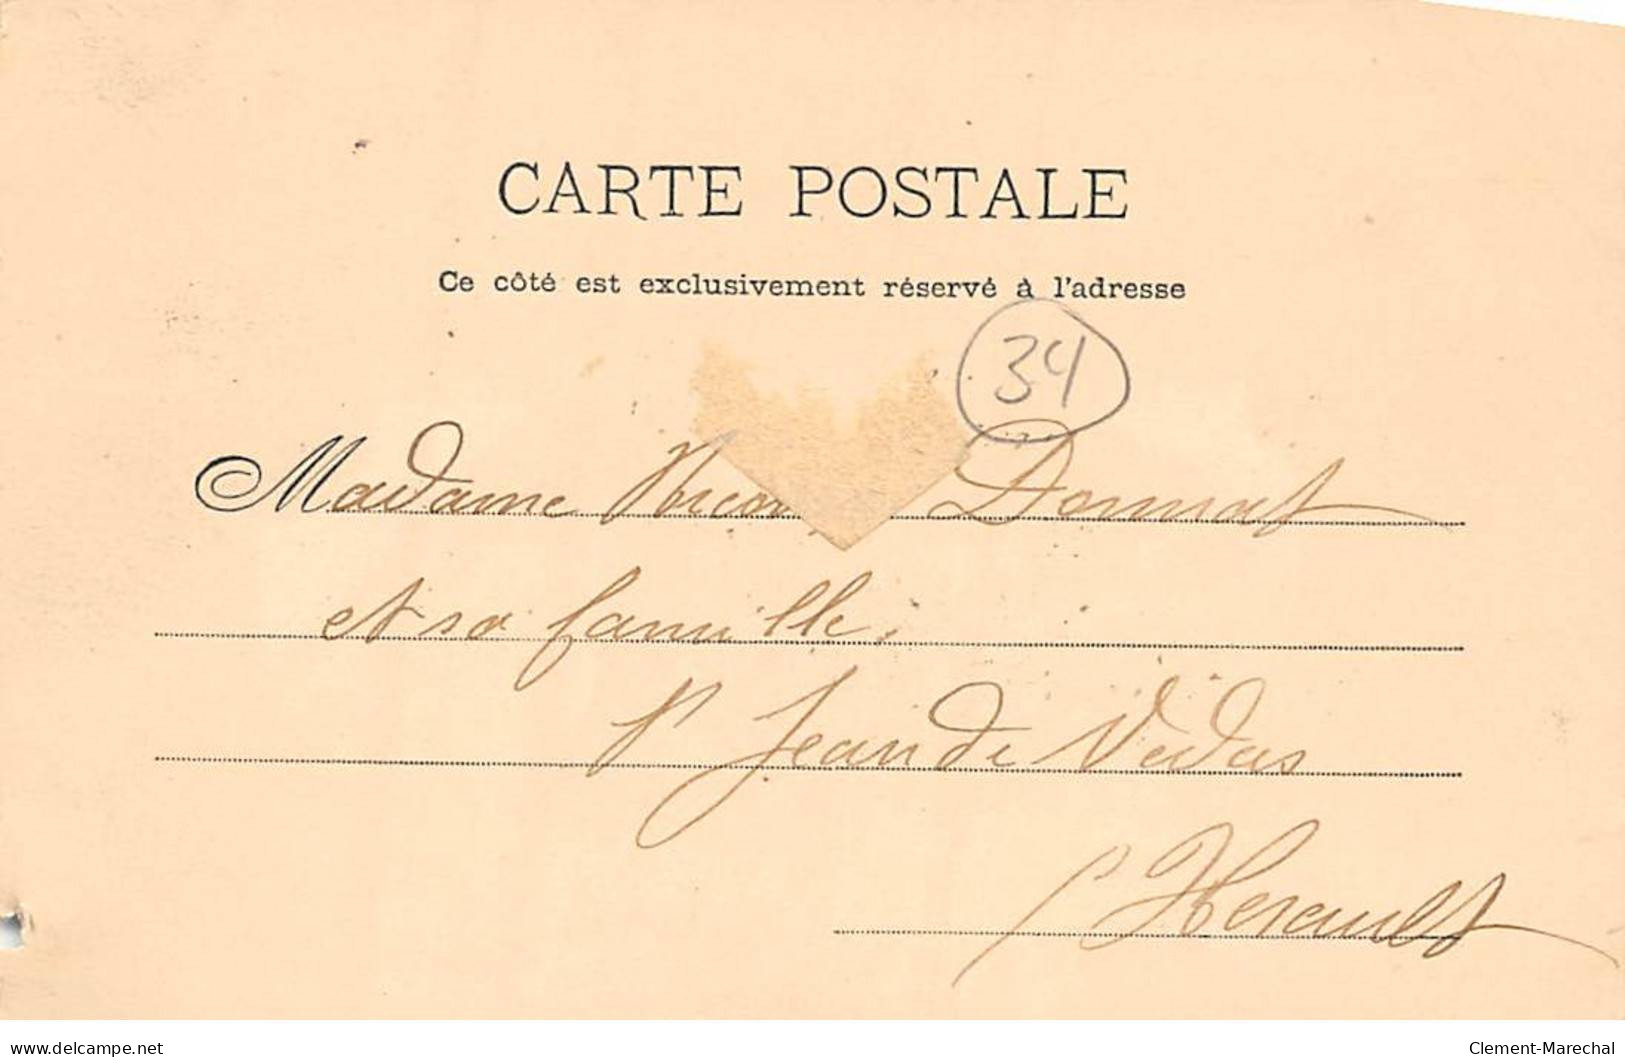 CARTE POSTALE
Ce côté est exclusivement réservé à l'adresse
34
Madame Donnat
et sa famille.
St Jean de Vedas
(Herault
delcampe.net
Clement-Marechal